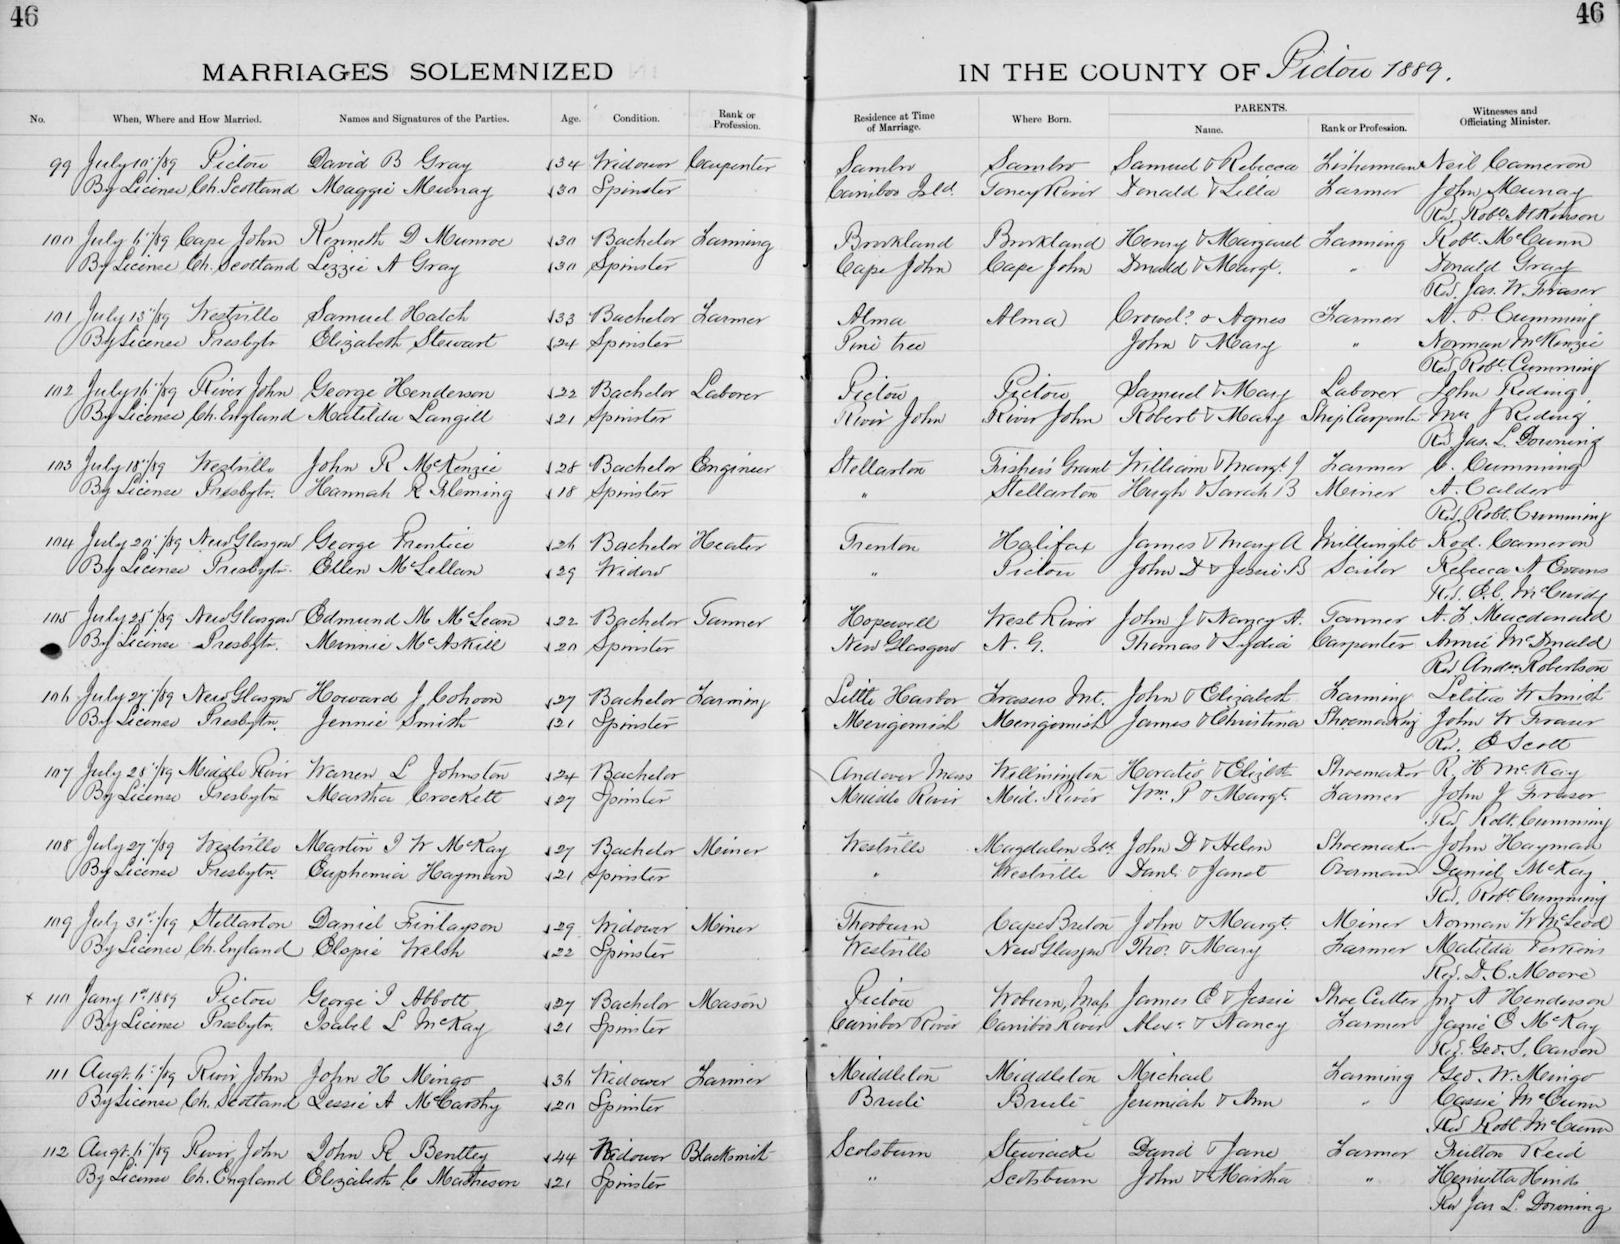 46
46
MARRIAGES SOLEMNIZED IN THE COUNTY OF Pictou 1889.
No. When, Where and How Married. Names and Signatures of the Parties. Age. Condition. Rank or Profession. Residence at Time of Marriage. Where Born. PARENTS. Name. Rank or Profession. Witnesses and Officiating Minister.
99 July 10"/89 Pictou David B Gray 34 Widower Carpenter Sambro Sambro Samuel & Rebecca Fisherman Neil Cameron
By License Ch. Scotland Maggie Murray 30 Spinster Caribou Isld. Toney River Donald & Lilla Farmer John Murray
Rev. Robt. Atkinson
100 July 6"/89 Cape John Kenneth D Munroe 30 Bachelor Farming Brookland Brookland Henry & Margaret Farming Robt. McCunn
By License Ch. Scotland Lizzie A Gray 30 Spinster Cape John Cape John Donald & Margt. " Donald Gray
Rev. Jas. W. Fraser
101 July 13"/89 Westville Samuel Hatch 33 Bachelor Farmer Alma Alma & Agnes Farmer A. P. Cumming
By License Presbytn. Elizabeth Stewart 24 Spinster Pine tree John & Mary " Norman McKenzie
Rev. Robt. Cumming
102 July 16"/89 River John George Henderson 22 Bachelor Laborer Pictou Pictou Samuel & Mary Laborer John Reding
By License Ch. England Matilda Langill 21 Spinster River John River John Robert & Mary Ship Carpenter Mrs J Reding
Rev Jas. L. Downing
103 July 18"/89 Westville John R McKenzie 28 Bachelor Engineer Stellarton Fisher's Grant William & Margt. J Farmer C. Cumming
By License Presbytn. Hannah R Fleming 18 Spinster " Stellarton Hugh & Sarah B Miner A. Calder
Rev. Robt. Cumming
104 July 20"/89 New Glasgow George Prentice 26 Bachelor Heater Trenton Halifax James & Mary A Millwright Rod. Cameron
By License Presbytn. Ellen McLellan 29 Widow " Pictou John D & Jessie B Sailor Rebecca A Evans
Rev. E. C. McCurdy
105 July 25"/89 New Glasgow Edmund M McLean 22 Bachelor Tanner Hopewell West River John J & Nancy A. Tanner A. F Macdonald
By License Presbytn. Minnie McAskill 20 Spinster New Glasgow N. G. Thomas & Lydia Carpenter Annie McDonald
Rev Andw. Robertson
106 July 27"/89 New Glasgow Howard J Cohoon 27 Bachelor Farming Little Harbor Frasers Mt. John & Elizabeth Farming Letitia W Smith
By License Presbytn. Jennie Smith 21 Spinster Merigomish Merigomish James & Christina Shoemaking John W Fraser
Rev. E Scott
107 July 28"/89 Middle River Warren L Johnston 24 Bachelor Andover Mass Wilmington Horatio & Elizbth Shoemaker R. H McKay
By License Presbytn Martha Crockett 27 Spinster Middle River Mid. River Wm. P & Margt. Farmer John J Fraser
Rev Robt. Cumming
108 July 27"/89 Westville Martin I W McKay 27 Bachelor Miner Westville Magdalen Isld. John D & Helen Shoemaker John Hayman
By License Presbytn. Euphemia Hayman 21 Spinster " Westville Danl. & Janet Overman Daniel McKay
Rev. Robt. Cumming
109 July 31st/89 Stellarton Daniel Finlayson 29 Widower Miner Thorburn Cape Breton John & Margt. Miner Norman W McLeod
By License Ch. England Elspie Welsh 22 Spinster Westville New Glasgow Thos. & Mary Farmer Matilda Perkins
Rev. D. C. Moore
x 110 Jany 1st 1889 Pictou George I Abbott 27 Bachelor Mason Pictou Woburn, Mass James E & Jessie Shoe Cutter Jno A Henderson
By License Presbytn. Isabel L McKay 21 Spinster Caribou River Caribou River Alexr. & Nancy Farmer Jamie E McKay
Rev. Geo. S. Carson
111 Augt. 6"/89 River John John H Mingo 36 Widower Farmer Middleton Middleton Michael Farming Geo. W. Mingo
By License Ch. Scotland Lessie A McCarthy 20 Spinster Brule Brule Jeremiah & Ann " Cassie McCunn
Rev Robt McCunn
112 Augt. 6"/89 River John John R Bentley 44 Widower Blacksmith Scotsburn Stewiacke David & Jane Farmer Fulton Reid
By License Ch. England Elizabeth C Matheson 21 Spinster " Scotsburn John & Martha " Henrietta Hinds
Rev Jas L. Downing